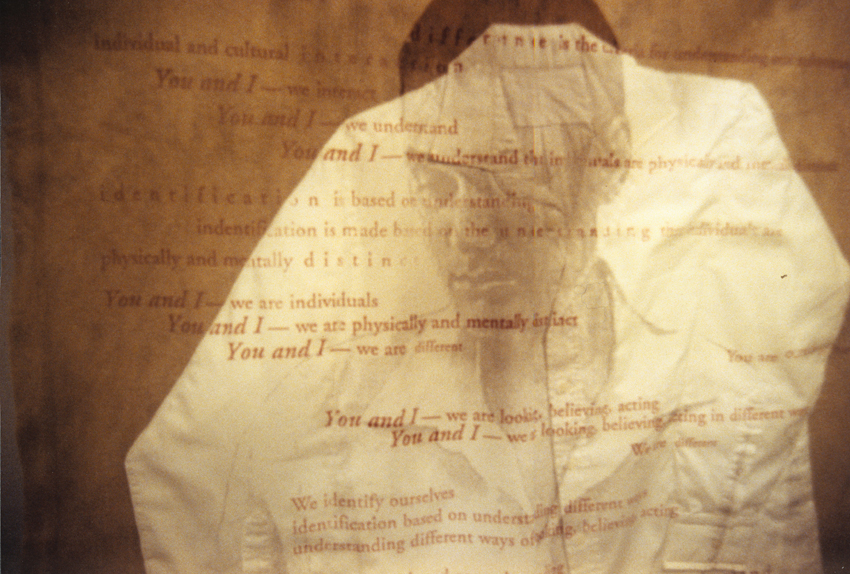 individual and cultural interaction
difference is the for understanding
You and I — we interact
You and I — we understand
You and I — we understand that individuals are physically and
identification is based on understanding
indentification is made based on the understanding individuals are
physically and mentally distinct
You and I — we are individuals
You and I — we are physically and mentally distinct
You and I — we are different
You are
You and I — we are looking, believing, acting
You and I — we looking, believing, acting in different
We are different
We identify ourselves
identification based on understanding different ways
understanding different ways of looking, believing, acting